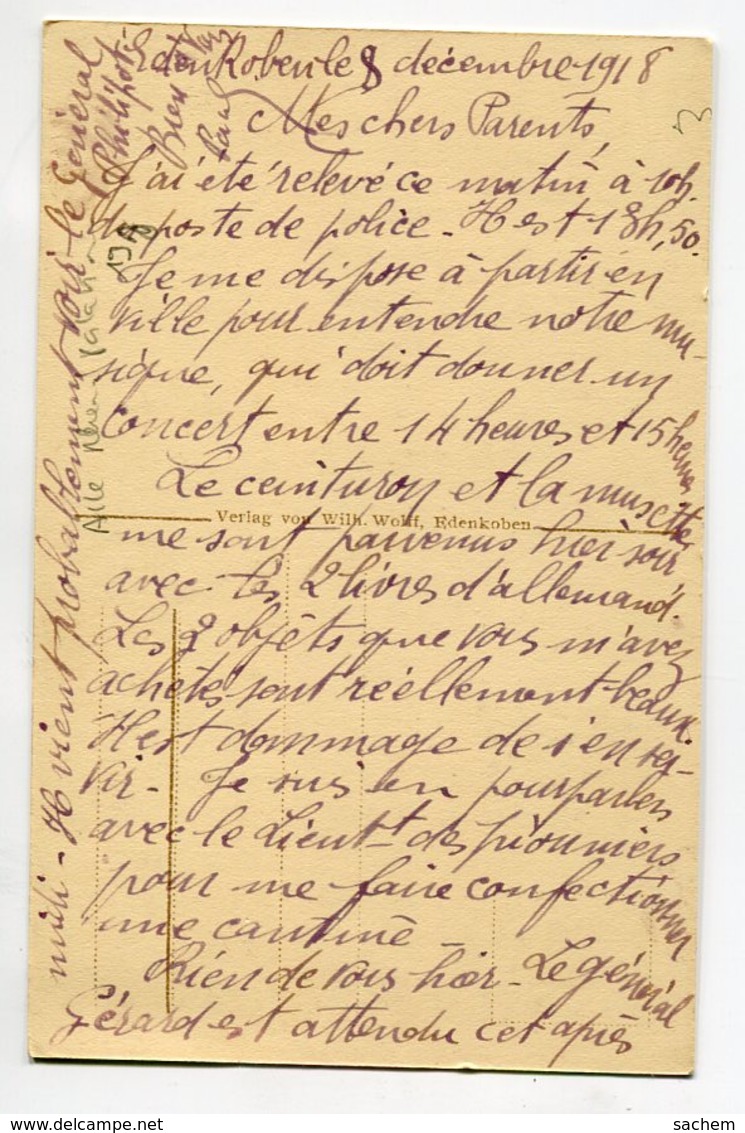 Edenkoben le 8 décembre 1918
Mes chers Parents,
J'ai été relevé ce matin à 10h.
du poste de police. Il est 13h,50.
Je me dispose à partir en
ville pour entendre notre mu-
sique, qui doit donner un
concert entre 14 heures et 15 heures
Le ceinturon et la musette
Verlag von Wilh. Wolff, Edenkoben
me sont parvenus hier soir
avec les 2 livres d'allemand.
Les 2 objets que vous m'avez
achetés sont réellement beaux.
Il est dommage de s'en ser-
vir. Je suis en pourparlers
avec le Lieutt des pionniers
pour me faire confectionner
une cantine
Rien de vous hier. Le général
Gérard est attendu cet après
midi - Il vient probablement voir le Général
Philipot.
Bien à vous
Paul
Alle
1918
3
delcampe.net
sachem